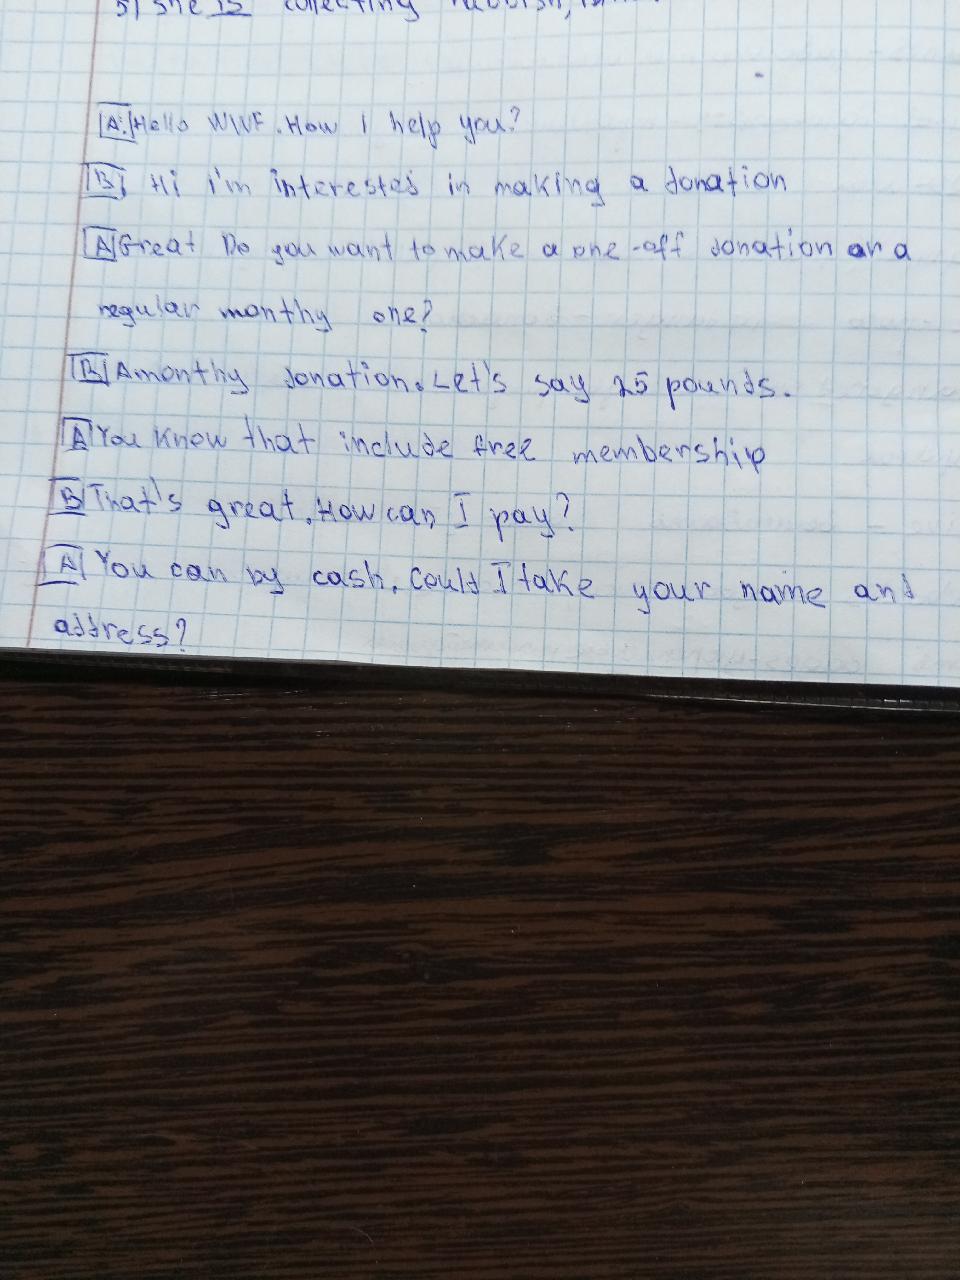 5) She is collecting rubbish,
A: Hello WWF. How I help you?
B: Hi i'm interested in making a donation
A Great Do you want to make a one-off donation or a
regular monthy one?
B A monthy donation. Let's say 25 pounds.
A You know that include free membership
B That's great. How can I pay?
A You can by cash. Could I take your name and
address?